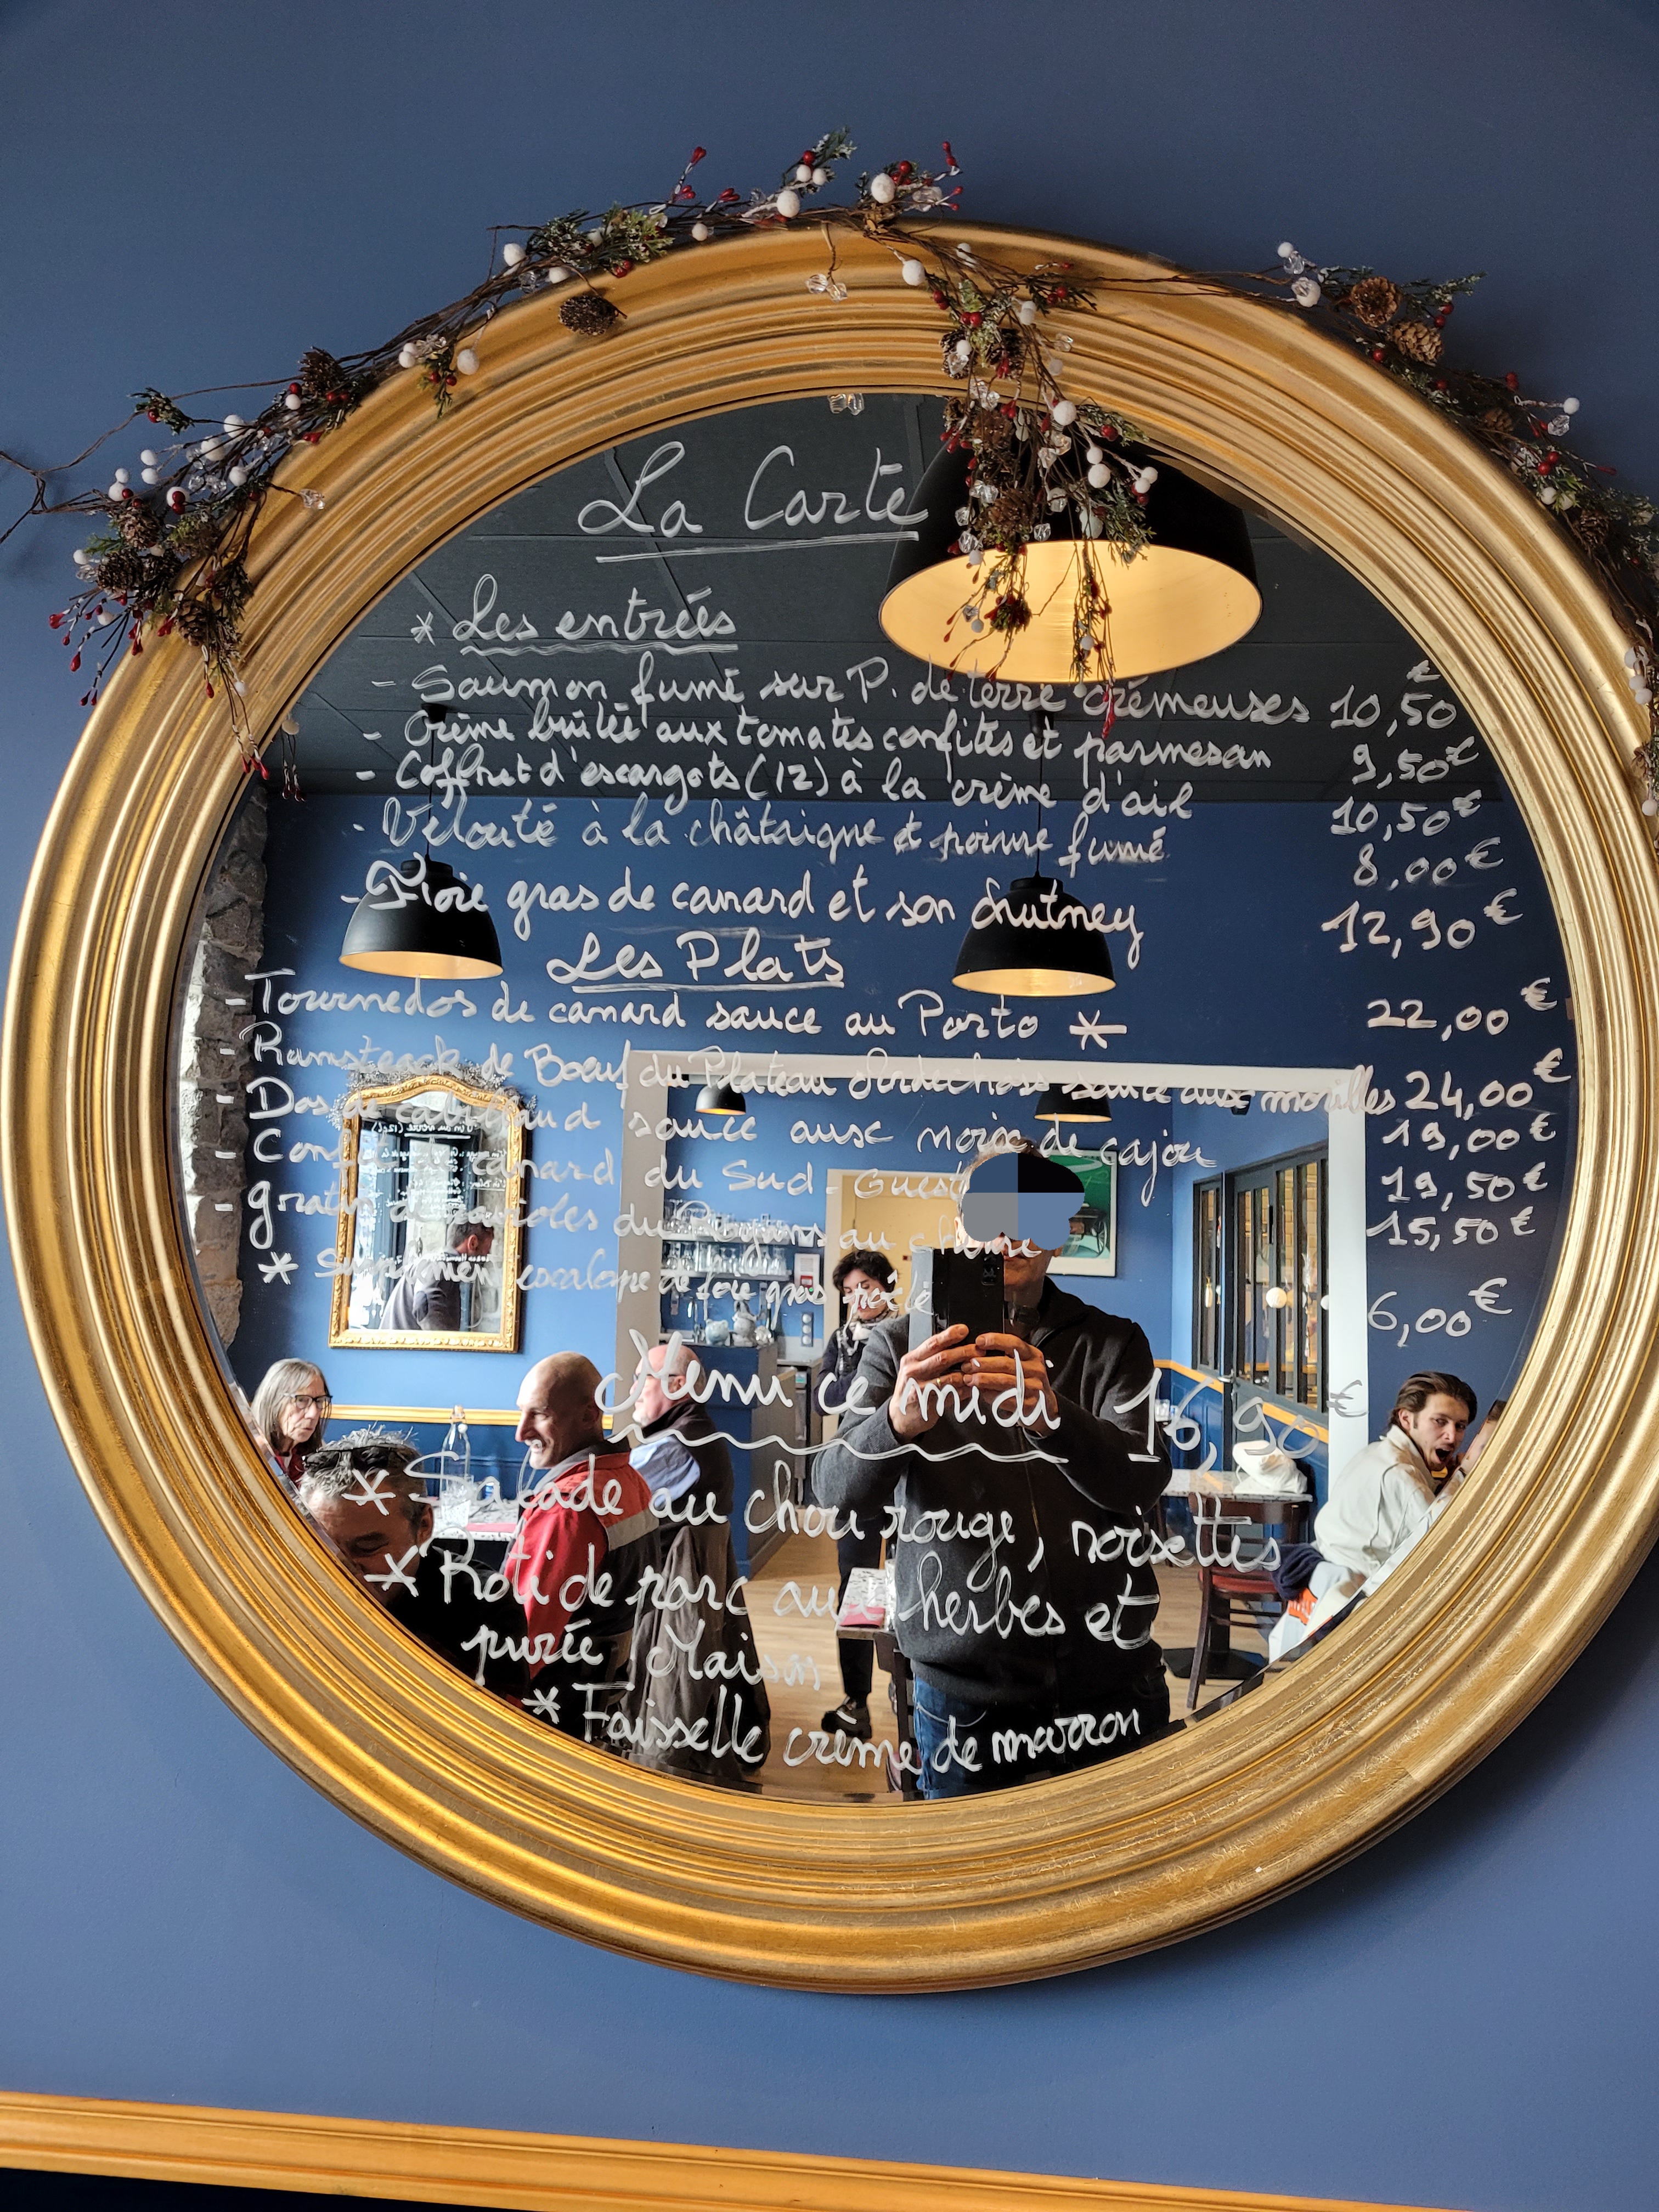 La Carte
* Les entrées
- Saumon fumé sur P. de terre crèmeuses 10,50 €
- Crème brûlée aux tomates confites et parmesan 9,50€
- Coffret d'escargots (12) à la crème d'ail 10,50€
- Velouté à la châtaigne et poivre fumé 8,00€
- Foie gras de canard et son chutney 12,90€
Les Plats
- Tournedos de canard sauce au Porto * 22,00€
- Rumsteack de Boeuf du Plateau Ardechois sauce aux morilles 24,00€
- Dos de cabillaud sauce aux noix de cajou 19,00€
- Confit de canard du Sud-Ouest 19,50€
- gratin de ravioles du Royans au chèvre 15,50€
* Supplément escalope de foie gras poêlé 6,00€
Menu ce midi 16,90€
* Salade au chou rouge, noisettes
* Roti de porc aux herbes et
purée Maison
* Faisselle crème de marron